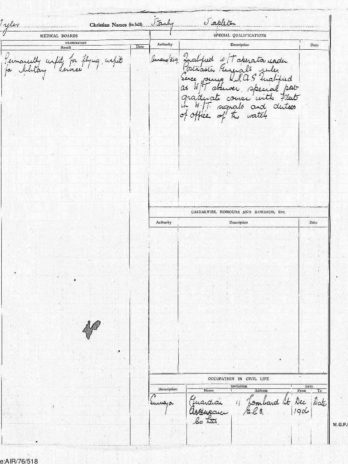 Christian Names (in full)
Stapleton
MEDICAL BOARDS
EXAMINATION
Result
Date
Permanently unfit for flying unfit
for Military Service
SPECIAL QUALIFICATIONS
Authority
Description
Date
Qualified W/T operator under
Generals rules
Since joining R.N.A.S qualified
as W/T observer, special post
graduate course with Fleet
in W/T signals and duties
of officer of the watch
CASUALTIES, HONOURS AND AWARDS, Etc.
Authority
Description
Date
OCCUPATION IN CIVIL LIFE
Description
EMPLOYER
Name
Address
DATE
From
To
Guardian
11 Lombard St
Dec
Date
Assurance
E.C.3
Co Ltd
AIR/76/518